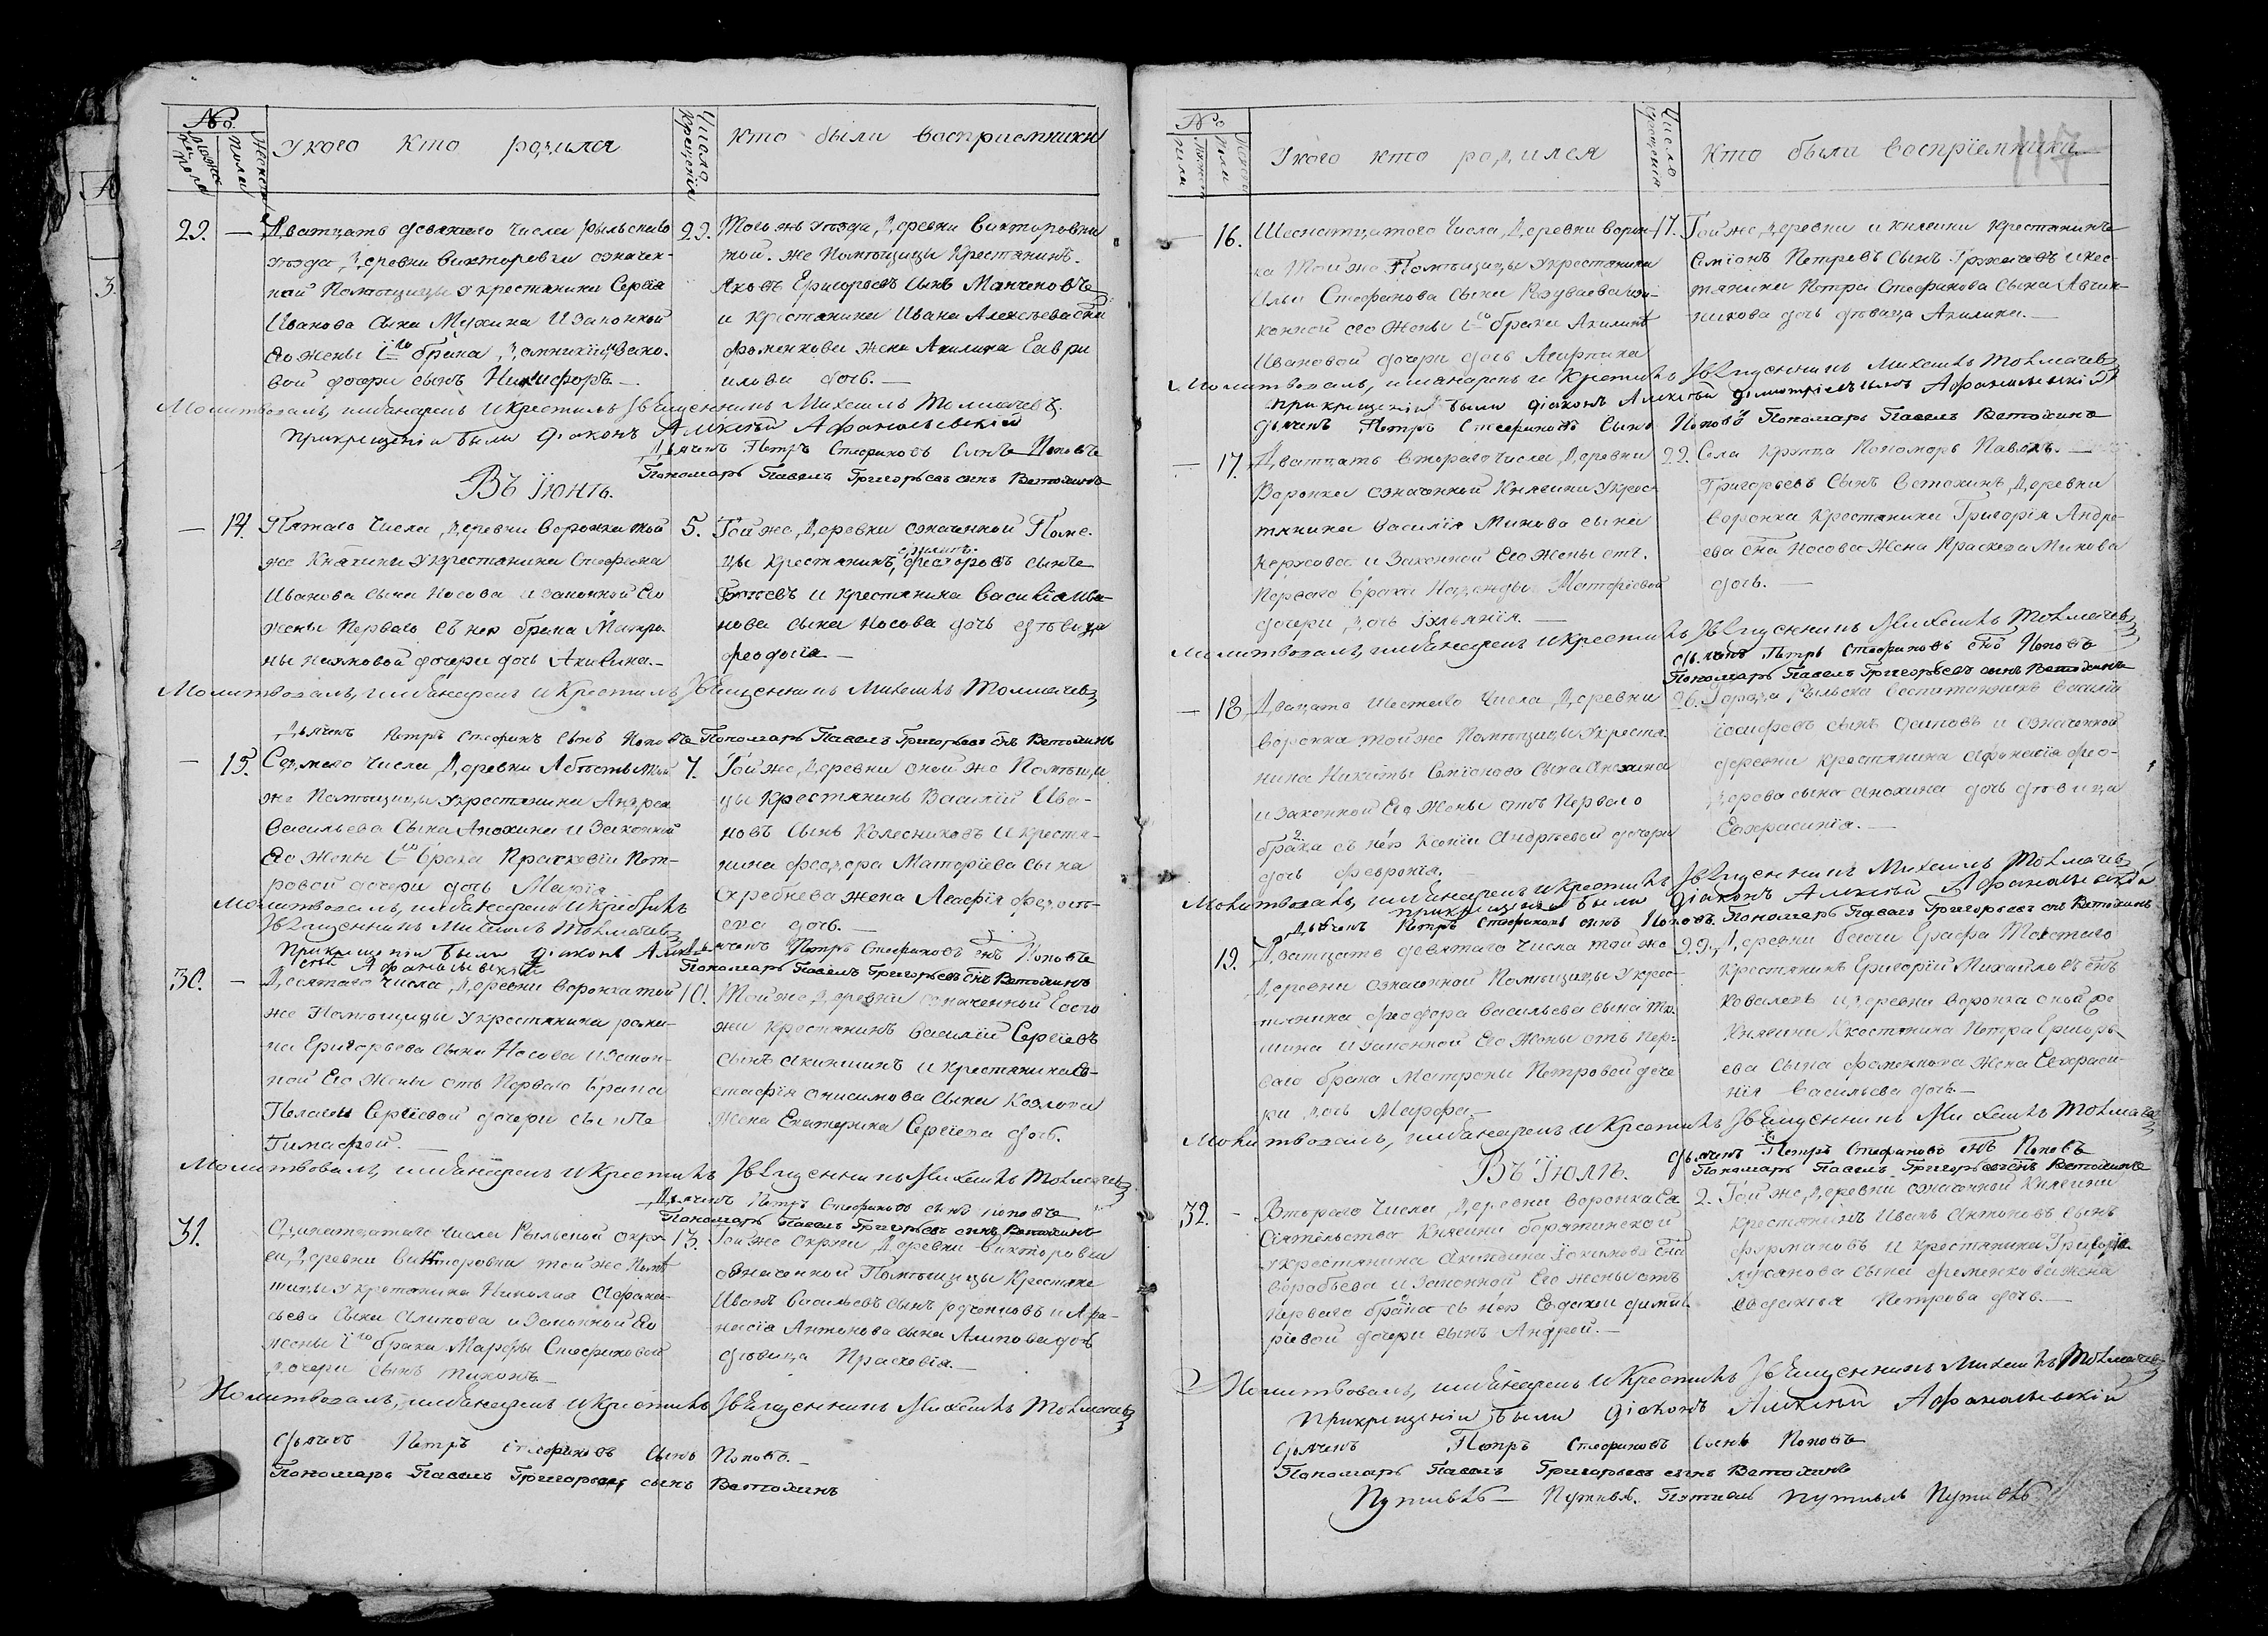 №
Мужеска пола
Женска пола
У кого кто родился
Числа крещенія
Кто были восприемники
29. — Дватцать девятаго числа рыльскаго
уезда, Деревни Викторовки означен-
ной Помѣщицы у крестянина Сергея
Иванова сына и законной
его жены 1го брака
вой дочери сынъ Никифоръ. —
29. Того жъ уезда, Деревни Викторовки
той же Помѣщицы Крестянинъ
Яковъ Григорьевъ сынъ
и крестянина Ивана Алексѣева сна
Фоменкова жена Акилина Гаври
илова дочь. —
Молитвовалъ, имянарекъ и крестилъ Священникъ Михаилъ Толмачевъ.
При крещеніи были діаконъ Алексѣй Афанасьевскій
Дьячекъ Петръ Стефановъ сынъ Поповъ
Пономарь Павелъ Григорьевъ сынъ Ветохинъ
Въ Іюнѣ.
— 14. Пятаго числа, Деревни Воронка той
же Княгини у крестянина Стефана
Иванова сына Носова и законной Его
жены Перваго съ нею брака Матро-
ны дочери дочь Акилина. —
5. Той же, Деревни означенной Поме-
цы крестянинъ, Федоровъ сынъ
и крестянина Василія Ива-
нова сына Носова дочь девица
Феодосія —
Молитвовалъ, имянарекъ и крестилъ Священникъ Михаилъ Толмачевъ
Дьячекъ Петръ Стефановъ сынъ Поповъ Пономарь Павелъ Григорьевъ снъ Ветохинъ
— 15. Седмаго числа, Деревни той
же Помѣщицы у крестянина Андрея
Васильева сына Анохина и законной
Его жены 1го брака Прасковіи Пет-
ровой дочери дочь Марія
7. Той же, Деревни оной же Помѣщи
цы Крестянинъ Василій Ива-
новъ сынъ Колесниковъ и крестя-
нина Феодора Матфіева сына
Скребнева жена Агафія
ева дочь. —
Молитвовалъ, имянарекъ и крестилъ
Священникъ Михаилъ Толмачевъ
При крещеніи были діаконъ Алек-
сѣй Афанасьевскій
Дьячекъ Петръ Стефановъ снъ Поповъ
Пономарь Павелъ Григорьевъ снъ Ветохинъ
30. — Десятаго числа, Деревни Воронка той
же Помѣщицы у крестянина рома-
на Григорьева сына Носова и закон-
ной Его жены отъ Перваго брака
Пелагеи Сергіевой дочери сынъ
Тимофей. —
10. Той же, Деревни означенный Госпо
жи крестянинъ Василій Сергіевъ
сынъ Акиншинъ и крестянина Ев-
стафія Онисимова сына Козлова
жена Екатерина Сергіева дочь.
Молитвовалъ, имянарекъ и крестилъ Священникъ Михаилъ Толмачевъ
Дьячекъ Петръ Стефановъ сынъ Поповъ
Пономарь Павелъ Григорьевъ сынъ Ветохинъ
31. числа Рыльской окру-
ги, Деревни Викторовки той же Помѣ
щицы у крестянина Николая Афана-
сьева сына Алипова и законной Его
жены 1го брака Марфы Стефановой
дочери сынъ Тихонъ —
13. Той же округи, Деревни Викторовки
означенной Помѣщицы Крестяне
Иванъ Васильевъ сынъ и Афа-
насія Антонова сына Алипова дочь
девица Прасковія. —
Молитвовалъ, имянарекъ и крестилъ Священникъ Михаилъ Толмачевъ
Дьячекъ Петръ Стефановъ сынъ Поповъ. —
Пономарь Павелъ Григорьевъ сынъ Ветохинъ
№
У кого кто родился
Число крещенія
Кто были воспріемники
117
— 16. Шеснатцатого числа, Деревни Ворон-
ка той же Помѣщицы у крестянина
Ильи Стефанова сына и за-
конной его жены 1го брака Акилины
Ивановой дочери дочь Агрипина
17. Той же, Деревни и княгини крестянинъ
Симіонъ Петровъ сынъ и крес-
тянина Петра Стефанова сына Авчин-
никова дочь девица Акилина. —
Молитвовалъ, имянарекъ и крестилъ Священникъ Михаилъ Толмачевъ
При крещеніи были діаконъ Алексѣй Димитріевъ сынъ Афанасьевскій
Дьячекъ Петръ Стефановъ сынъ Поповъ Пономарь Павелъ Ветохинъ
— 17. Дватцать втораго числа, Деревни
Воронки означенной Княгини у крес-
тянина Василія Минова сына
и Законной Его жены отъ
Перваго брака Надежды Матфіевой
дочери, дочь Іуліянія. —
22. Села Крупца Пономарь Павелъ —
Григорьевъ сынъ Ветохинъ, Деревни
Воронка крестянина Григорія Андре-
ева сна Носова жена Праскева Минова
дочь. —
Молитвовалъ, имянарекъ и крестилъ Священникъ Михаилъ Толмачевъ
Дьячекъ Петръ Стефановъ снъ Поповъ
Пономарь Павелъ Григорьевъ сынъ Ветохинъ
— 18. Двацать шестаго числа, Деревни
Воронка, той же Помѣщицы у крестя-
нина Никиты Симіонова сына Анохина
и законной Его жены отъ Перваго
брака съ нею Ксеніи Андрѣевой дочери
дочь Февронія. —
26. Города Рыльска воспитанникъ Василій
Іосифовъ сынъ Осиповъ и означенной
деревни крестянина Афанасія Фео-
дорова сына Анохина дочь девица
Евфросинія. —
Молитвовалъ, имянарекъ и крестилъ Священникъ Михаилъ Толмачевъ
При крещеніи были діаконъ Алексѣй Афанасьевскій
Дьячекъ Петръ Стефановъ сынъ Поповъ. Пономарь Павелъ Григорьевъ снъ Ветохинъ
19. Дватцать девятаго числа той же
Деревни означенной Помѣщицы у крес-
тянина Феодора Васильева сына
и Законной Его жены отъ Пер-
ваго брака Матроны Петровой доче
ри дочь Марфа. —
29. Деревни Графа Толстаго
крестянинъ Григорій Михайловъ снъ
Ковалевъ и деревни Воронка
Княгини Крестянина Петра Григорь-
ева сына Фоменкова жена Евфроси-
нія Васильева дочь. —
Молитвовалъ, имянарекъ и крестилъ Священникъ Михаилъ Толмачевъ
Дьячекъ Петръ Стефановъ снъ Поповъ
Пономарь Павелъ Григорьевъ снъ Ветохинъ
Въ Іюлѣ.
32. — Втораго числа, Деревни Воронка Ея
Сіятельства Княгини Борятинской
у крестянина Акиндина сна
Воробьева и Законной Его жены отъ
Перваго брака съ нею Евдокіи Димит-
ріевой дочери сынъ Андрей. —
2. Той же, Деревни означенной Княгини
крестянинъ Иванъ Антоновъ сынъ
Фурмановъ и крестянина Григорія
Лукянова сына Фоменкова жена
Евдокія Петрова дочь. —
Молитвовалъ, имянарекъ и крестилъ Священникъ Михаилъ Толмачевъ
При крещеніи были діаконъ Алексѣй Афанасьевскій
Дьячекъ Петръ Стефановъ сынъ Поповъ
Пономарь Павелъ Григорьевъ сынъ Ветохинъ
Путивль — Путивль. Путивль Путивль Путивль